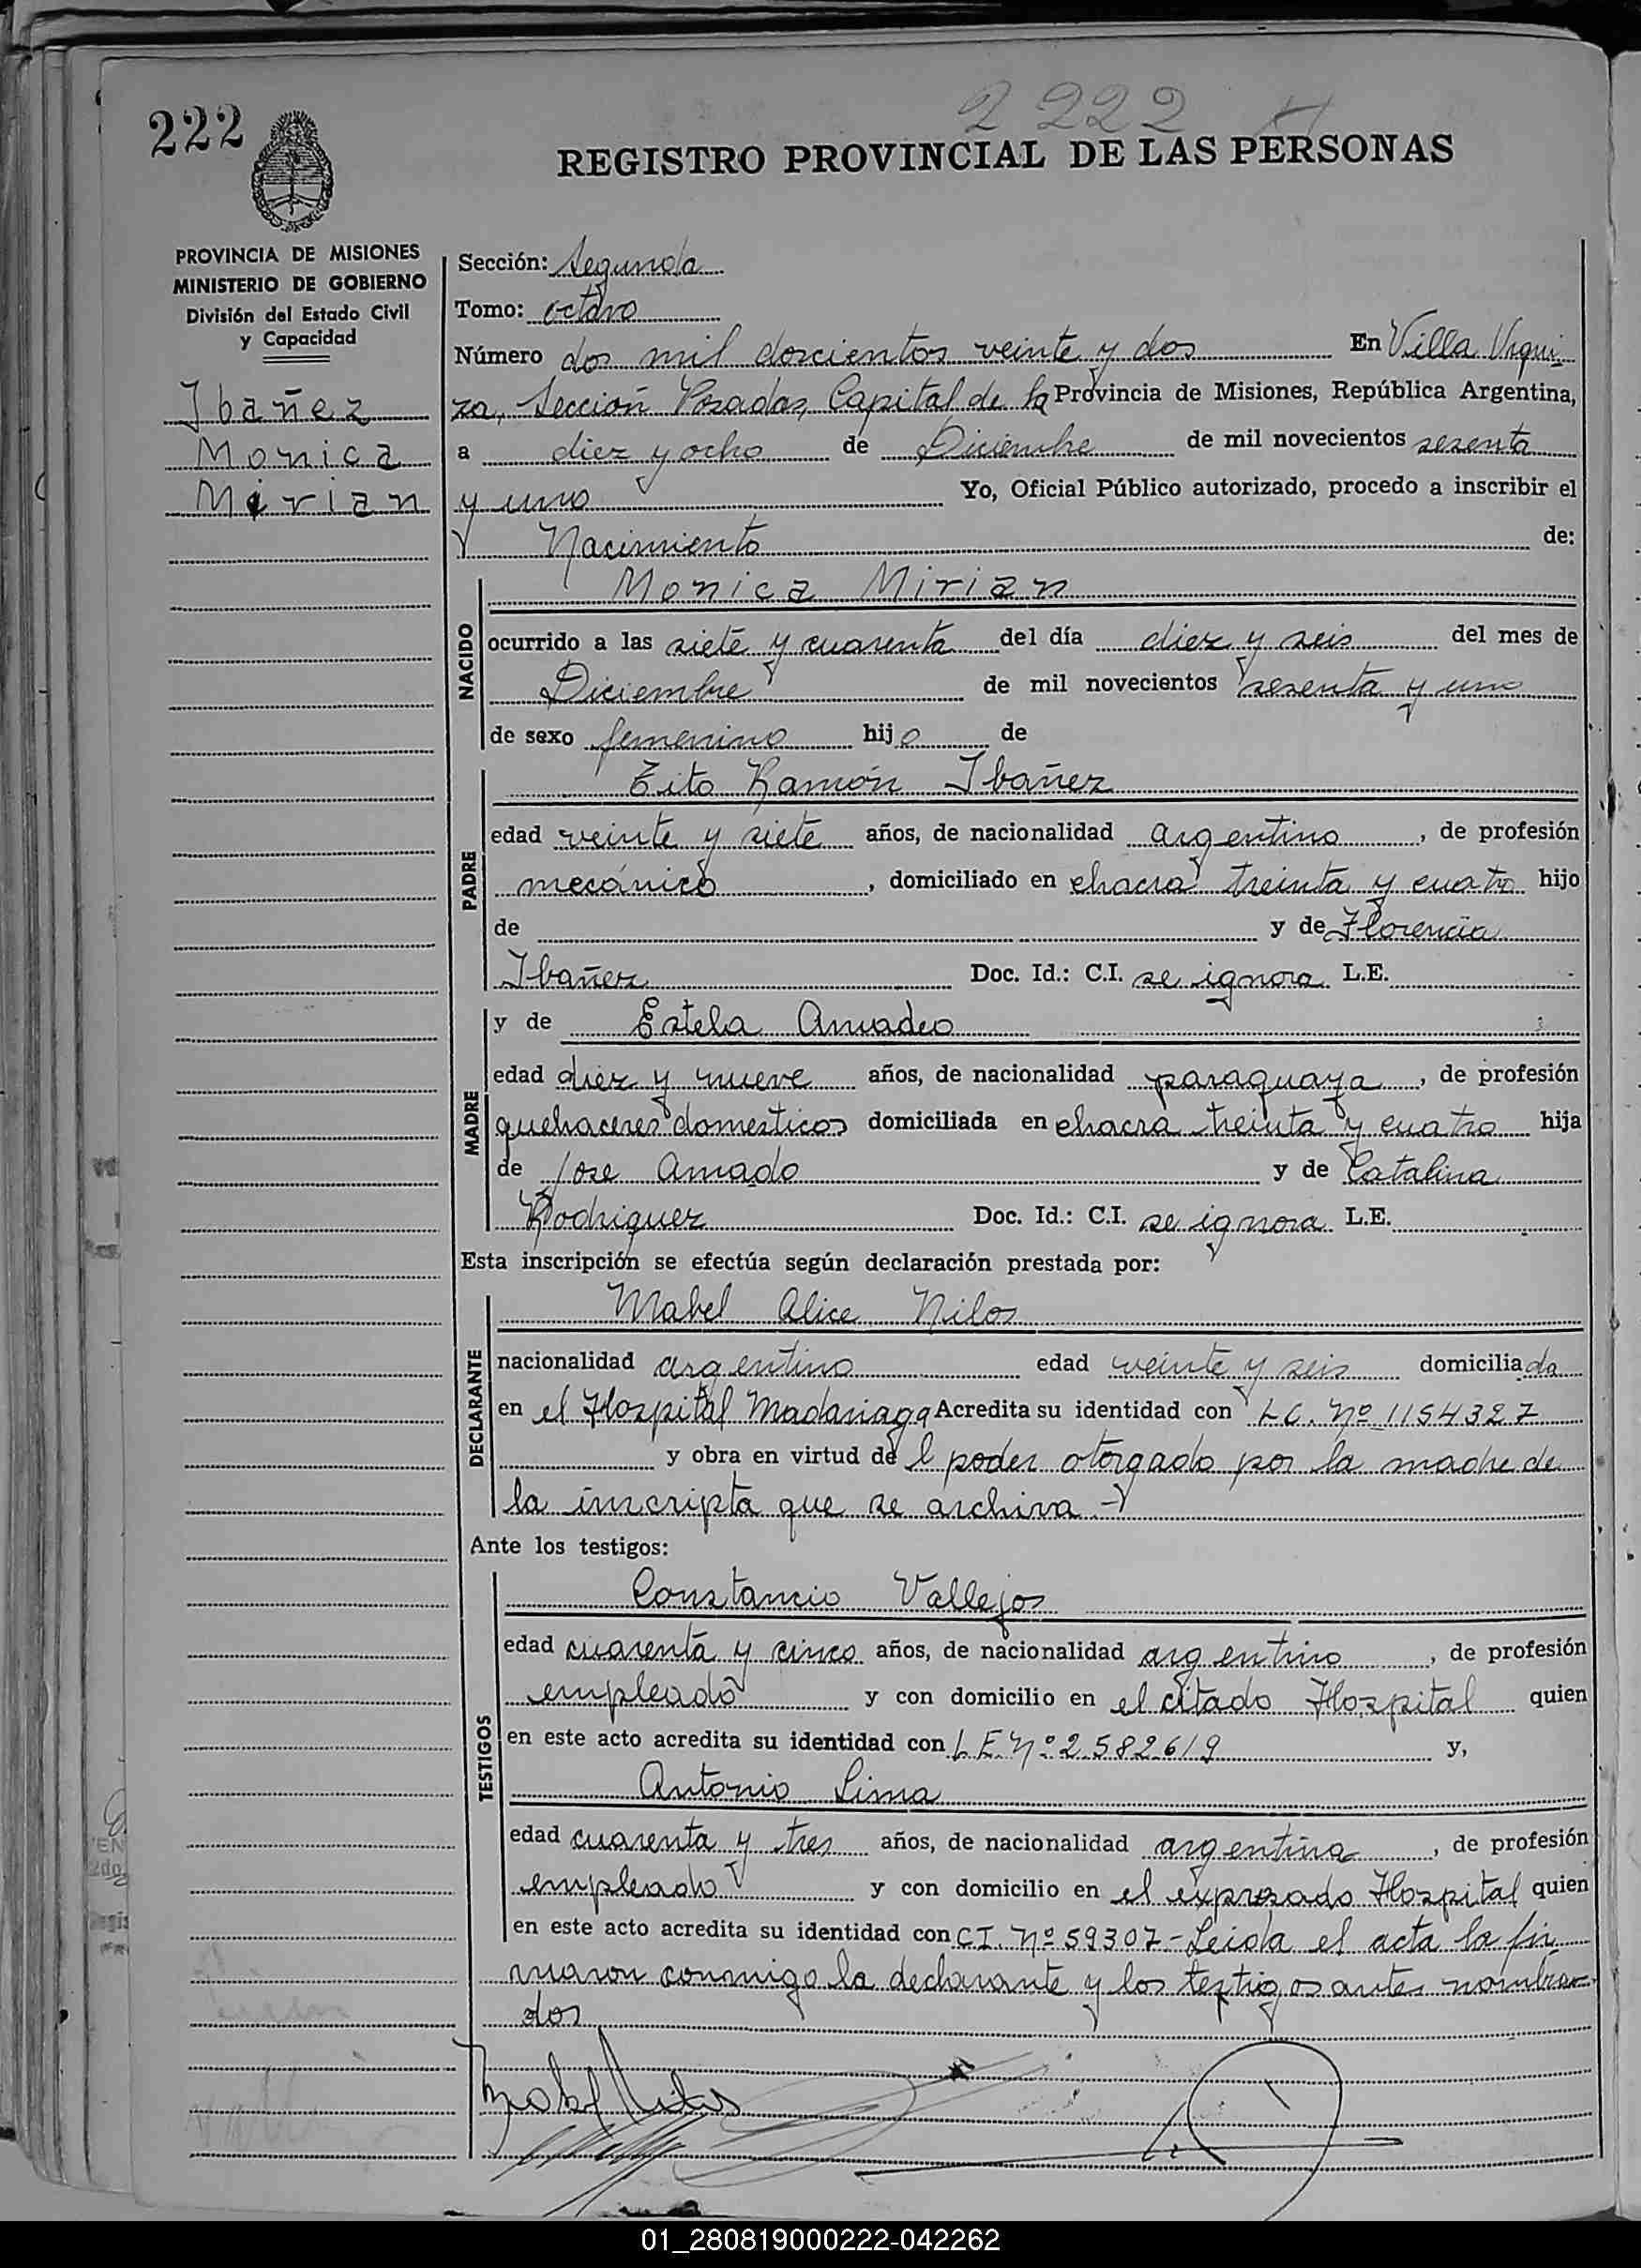 2 222
222
REGISTRO PROVINCIAL DE LAS PERSONAS
PROVINCIA DE MISIONES
MINISTERIO DE GOBIERNO
División del Estado Civil
y Capacidad
Ibañez
Monica
Mirian
Sección: Segunda
Tomo: octavo
Número dos mil doscientos veinte y dos En Villa Urqui-
za, Sección Posadas, Capital de la Provincia de Misiones, República Argentina,
a diez y ocho de Diciembre de mil novecientos sesenta
y uno Yo, Oficial Público autorizado, procedo a inscribir el
Nacimiento de:
NACIDO
Monica Mirian
ocurrido a las siete y cuarenta del día diez y seis del mes de
Diciembre de mil novecientos sesenta y uno
de sexo femenino hijo de
PADRE
Tito Ramón Ibañez
edad veinte y siete años, de nacionalidad argentino, de profesión
mecánico, domiciliado en chacra treinta y cuatro hijo
de y de Florencia
Ibañez Doc. Id.: C.I. se ignora L.E.
MADRE
y de Estela Amadeo
edad diez y nueve años, de nacionalidad paraguaya, de profesión
quehaceres domesticos domiciliada en chacra treinta y cuatro hija
de Jose Amado y de Catalina
Rodriguez Doc. Id.: C.I. se ignora L.E.
Esta inscripción se efectúa según declaración prestada por:
DECLARANTE
Mabel Alice Nilos
nacionalidad argentino edad veinte y seis domiciliada
en el Hospital Madariaga Acredita su identidad con L.C. Nº 1154327
y obra en virtud del poder otorgado por la madre de
la inscripta que se archiva.-
Ante los testigos:
TESTIGOS
Constancio Vallejos
edad cuarenta y cinco años, de nacionalidad argentino, de profesión
empleado y con domicilio en el citado Hospital quien
en este acto acredita su identidad con L.E. Nº 2.582.619 y,
Antonio Lima
edad cuarenta y tres años, de nacionalidad argentina, de profesión
empleado y con domicilio en el expresado Hospital quien
en este acto acredita su identidad con C.I. Nº 59307- Leida el acta la fir
maron conmigo la declarante y los testigos antes nombra-
dos
Mabel Nilos
01_280819000222-042262